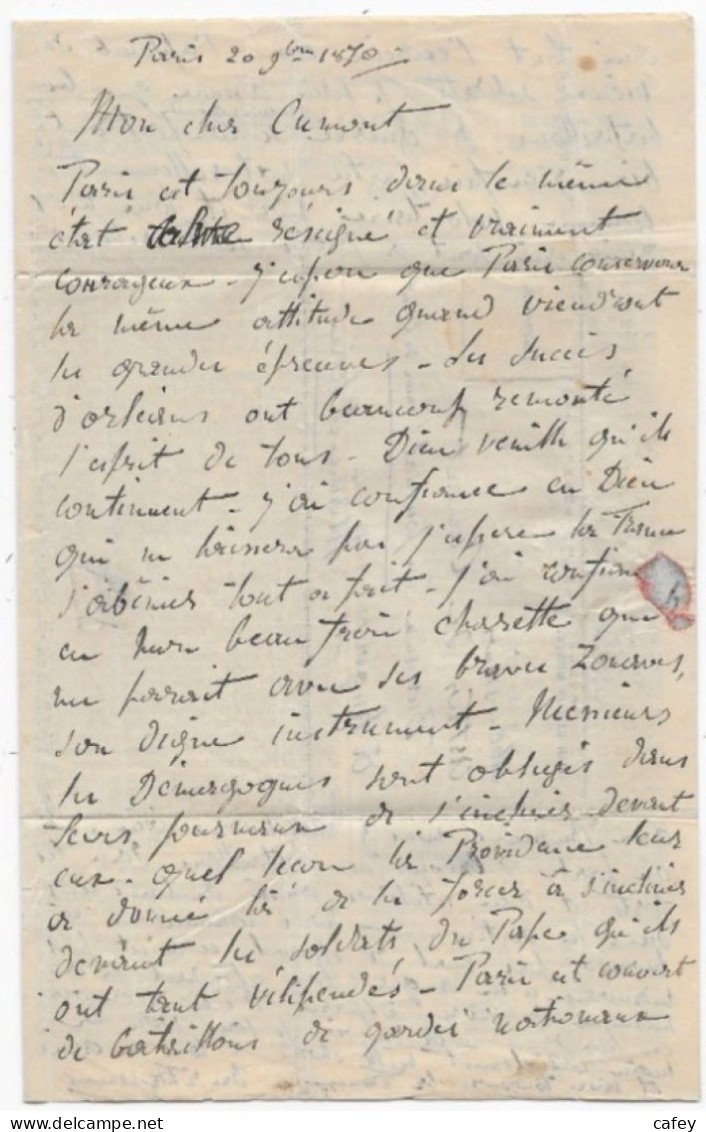 Paris 20 9bre 1870
Mon cher Cumont
Paris est toujours dans le même
état résigné et vraiment
courageux - j'espère que Paris conservera
la même attitude quand viendront
les grandes épreuves - Les succès
d'orléans ont beaucoup remonté
l'esprit de tous - Dieu veuille qu'ils
continuent - j'ai confiance en Dieu
qui ne laissera pas j'espère la France
s'abîmer tout a fait - j'ai confiance
en mon beau frère charette qui
me parait avec ses braves Zouaves,
son digne instrument - Messieurs
les Démagogues sont obligés dans
leurs journaux de s'incliner devant
eux - quel leçon la Providence leur
a donné là de les forcer à s'incliner
devant les soldats du Pape qu'ils
ont tant vilipendés - Paris est couvert
de bataillons de gardes nationaux
delcampe.net
cafey